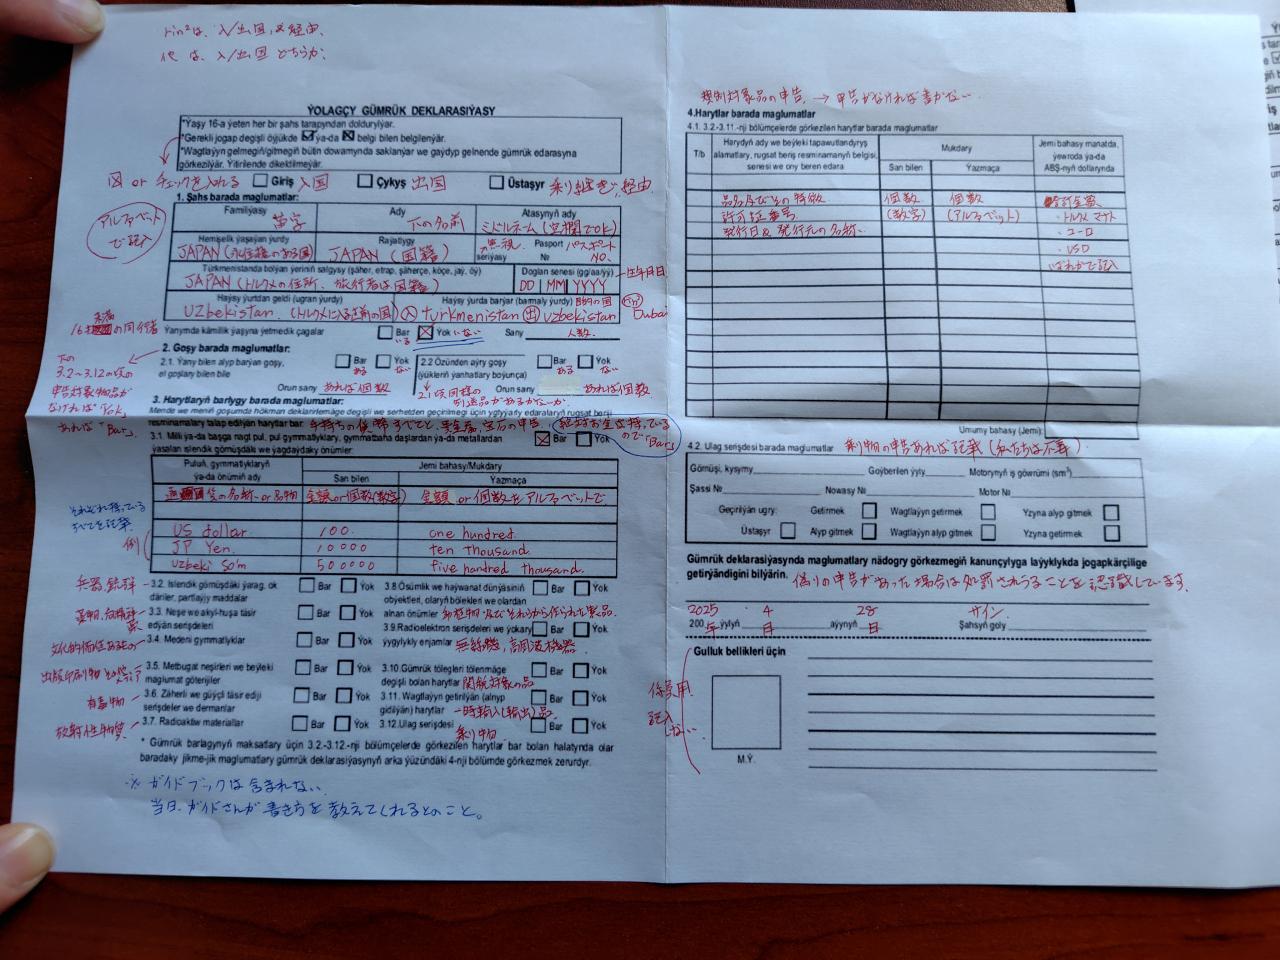 rin²は、入/出国,&経由、
他は、入/出国 どちらか、
ÝOLAGÇY GÜMRÜK DEKLARASIÝASY
*Ýaşy 16-a ýeten her bir şahs tarapyndan doldurylýar.
*Gerekli jogap degişli öýjükde ☑ ýa-da ☒ belgi bilen belgilenýär.
*Wagtlaýyn gelmegiň/gitmegiň bütin dowamynda saklanýar we gaýdyp gelnende gümrük edarasyna
görkezilýär. Ýitirilende dikeldilmeýär.
☒ or チェックを入れる ☐ Giriş 入国 ☐ Çykyş 出国 ☐ Üstaşyr 乗り継ぎ,経由
アルファベットで記入
1. Şahs barada maglumatlar:
Familýasy 苗字 Ady 下の名前 Atasynyň ady ミドルネーム (空欄でOK)
Hemişelik ýaşaýan ýurdy Raýatlygy Pasport パスポート
JAPAN (永住権のある国) JAPAN (国籍) 無視 seriýasy № NO.
Türkmenistanda bolýan ýeriniň salgysy (şäher, etrap, şäherçe, köçe, jaý, öý) Doglan senesi (gg/aa/ýý) 生年月日
JAPAN (トルクメの住所、旅行者は国籍) DD MM YYYY
Haýsy ýurtdan geldi (ugran ýurdy) Haýsy ýurda barýar (barmaly ýurdy) 目的の国 rin²
Uzbekistan. (トルクメに入る直前の国) 入 turkmenistan 出 uzbekistan Dubai
16才未満の同行者 Ýanymda kämillik ýaşyna ýetmedik çagalar ☐ Bar いる ☒ Ýok いない Sany 人数
2. Goşy barada maglumatlar:
2.1. Ýany bilen alyp barýan goşy, el goşlary bilen bile ☐ Bar ある ☐ Ýok ない
Orun sany あれば個数
2.2 Özünden aýry goşy (ýükleriň ýanhatlary boýunça) ☐ Bar ある ☐ Ýok ない
Orun sany あれば個数
下の
3.2〜3.12の項の
申告対象物品が
なければ「Yok」
あれば「Bar」
3. Harytlaryň barlygy barada maglumatlar:
Mende we meniň goşumda hökman deklarirlemäge degişli we serhetden geçirilmegi üçin ygtyýarly edaralaryň rugsat beriji
resminamalary talap edilýän harytlar bar:
3.1. Milli ýa-da başga nagt pul, pul gymmatlyklary, gymmatbaha daşlardan ýa-da metallardan ☒ Bar ☐ Ýok
ýasalan islendik görnüşdäki we ýagdaýdaky önümler:
絶対お金は持っている
ので「Bar」
Puluň, gymmatlyklaryň ýa-da önümiň ady Jemi bahasy/Mukdary
San bilen Ýazmaça
金額or個数(数字) 金額 or 個数をアルファベットで
それぞれ持っている
すべてを記載
例
US dollar 100. one hundred.
JP Yen. 10000 ten thousand.
uzbeki so'm 500000 five hundred thousand.
兵器,銃弾 3.2. Islendik görnüşdäki ýarag, ok däriler, partlaýjy maddalar ☐ Bar ☐ Ýok
3.3. Neşe we akyl-huşa täsir edýän serişdeleri ☐ Bar ☐ Ýok
3.4. Medeni gymmatlyklar ☐ Bar ☐ Ýok
3.5. Metbugat neşirleri we beýleki maglumat göterijiler ☐ Bar ☐ Ýok
有毒物 3.6. Zäherli we güýçli täsir ediji serişdeler we dermanlar ☐ Bar ☐ Ýok
放射性物質 3.7. Radioaktiw materiallar ☐ Bar ☐ Ýok
3.8 Ösümlik we haýwanat dünýäsiniň obýektleri, olaryň bölekleri we olardan alnan önümler ☐ Bar ☐ Ýok
動植物及びそれらから作られた製品
3.9. Radioelektron serişdeleri we ýokary ýygylykly enjamlar ☐ Bar ☐ Ýok
無線機,高周波機器
3.10. Gümrük tölegleri tölenmäge degişli bolan harytlar ☐ Bar ☐ Ýok
関税対象の品
3.11. Wagtlaýyn getirilýän (alnyp gidilýän) harytlar ☐ Bar ☐ Ýok
一時輸入(輸出)品
3.12. Ulag serişdesi ☐ Bar ☐ Ýok
乗り物
* Gümrük barlagynyň maksatlary üçin 3.2.-3.12.-nji bölümçelerde görkezilen harytlar bar bolan halatynda olar
baradaky jikme-jik maglumatlary gümrük deklarasiýasynyň arka ýüzündäki 4-nji bölümde görkezmek zerurdyr.
※ ガイドブックは含まれない.
当日,ガイドさんが書き方を教えてくれるとのこと。
規制対象品の申告. → 申告がなければ書かない.
4.Harytlar barada maglumatlar
4.1. 3.2.-3.11.-nji bölümçelerde görkezilen harytlar barada maglumatlar
T/b
Harydyň ady we beýleki tapawutlandyryş alamatlary, rugsat beriş resminamanyň belgisi, senesi we ony beren edara
Mukdary
San bilen Ýazmaça
Jemi bahasy manatda, ýewroda ýa-da ABŞ-nyň dollarynda
品名及びその特徴 個数 個数
許可証番号 (数字) (アルファベット) ・トルクメ マナト
発行日&発行元の名称. ・ユーロ
・USD
Umumy bahasy (Jemi):
4.2. Ulag serişdesi barada maglumatlar 乗り物の申告あれば記載 (私たちは不要)
Görnüşi, kysymy Goýberilen ýyly Motorynyň iş göwrümi (sm³)
Şassi № Nowasy № Motor №
Geçirilýän ugry: Getirmek ☐ Wagtlaýyn getirmek ☐ Yzyna alyp gitmek ☐
Üstaşyr ☐ Alyp gitmek ☐ Wagtlaýyn alyp gitmek ☐ Yzyna getirmek ☐
Gümrük deklarasiýasynda maglumatlary nädogry görkezmegiň kanunçylyga laýyklykda jogapkärçilige
getirýändigini bilýärin. 偽りの申告があった場合は処罰されることを認識しています.
2025 4 28 サイン
200 年 ýylyň 月 aýynyň 日 Şahsyň goly
Gulluk bellikleri üçin
係員用.
記入
しない.
M.Ý.